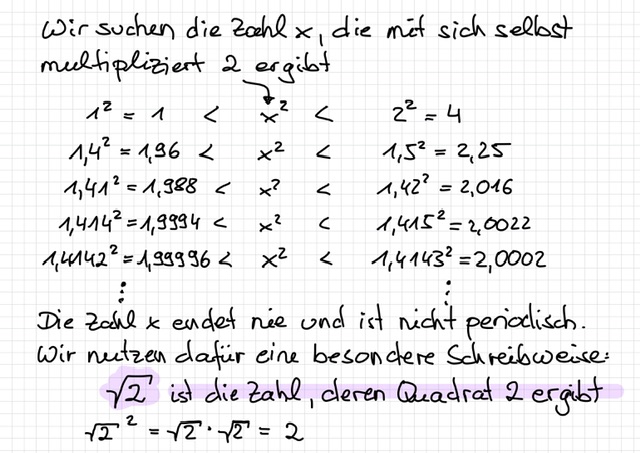 Wir suchen die Zahl x, die mit sich selbst
multipliziert 2 ergibt
1² = 1 < x² < 2² = 4
1,4² = 1,96 < x² < 1,5² = 2,25
1,41² = 1,988 < x² < 1,42² = 2,016
1,414² = 1,9994 < x² < 1,415² = 2,0022
1,4142² = 1,99996 < x² < 1,4143² = 2,0002
⋮ ⋮
Die Zahl x endet nie und ist nicht periodisch.
Wir nutzen dafür eine besondere Schreibweise:
√2 ist die Zahl, deren Quadrat 2 ergibt
√2² = √2 · √2 = 2